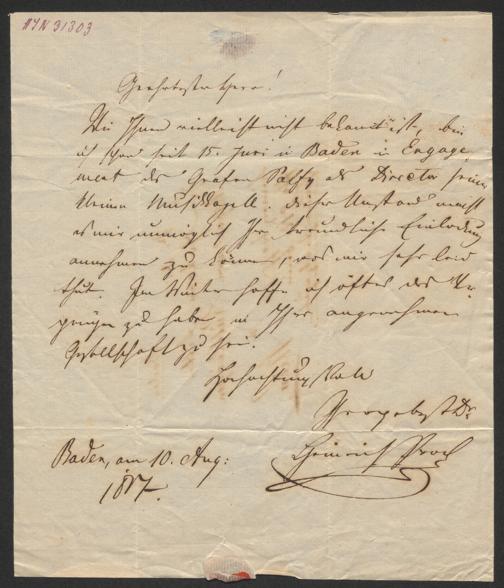 HIN 31303
Geehrtester Herr!
Wie Ihnen vielleicht nicht bekannt ist, bin
ich schon seit 15. Juni in Baden in Engage-
ment des Grafen Palfy als Director seiner
kleinen Musikkapelle. Dieser Umstand macht
es mir unmöglich Ihre freundliche Einladung
annehmen zu können, was mir sehr leid
thut. Im Winter hoffe ich öfters das Ver-
gnügen zu haben in Ihrer angenehmen
Gesellschaft zu sein.
Hochachtungsvoll
Ihr ergebenster Dr.
Heinrich Proch
Baden, am 10. Aug: